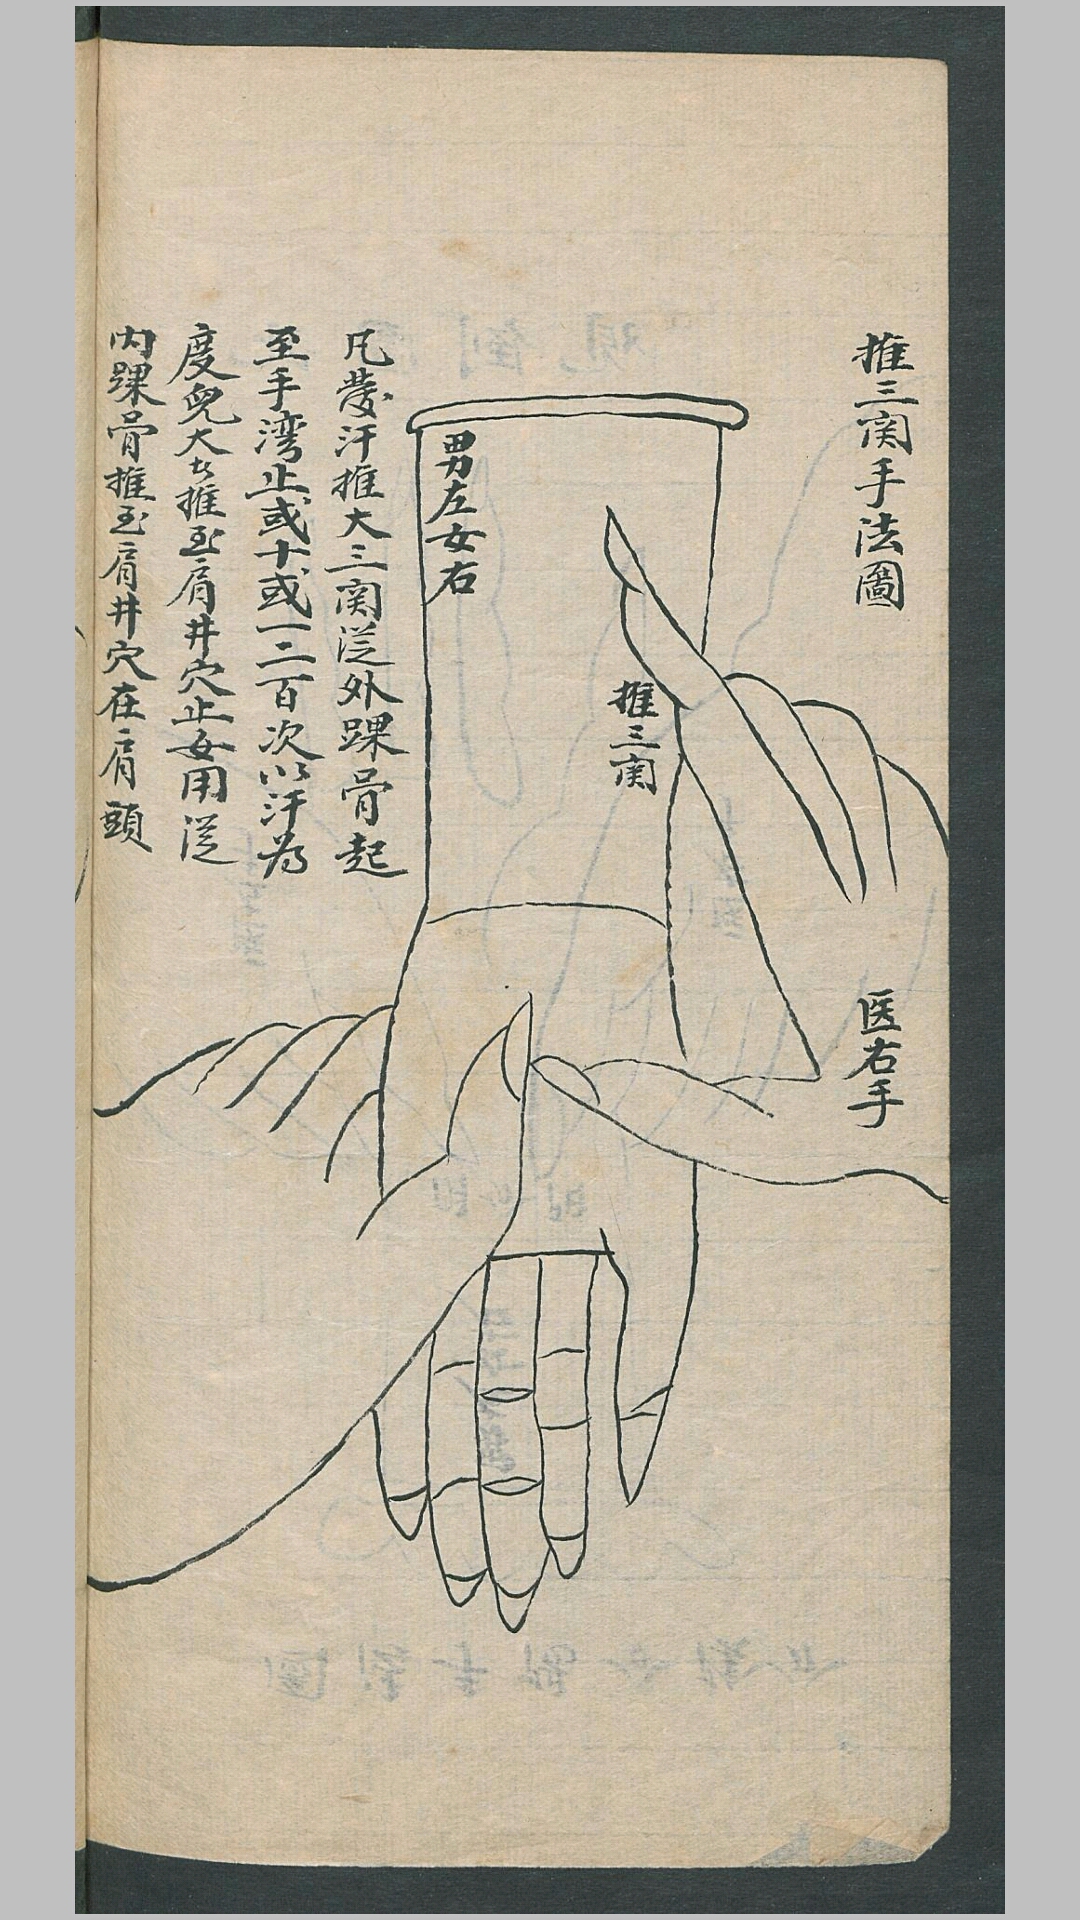 推三関手法圖
医右手
推三関
男左女右
凡發汗推大三関従外踝骨起
至手湾止或十或一二百次以汗為
度兒大者推至肩井穴止女用従
内踝骨推至肩井穴在肩頭